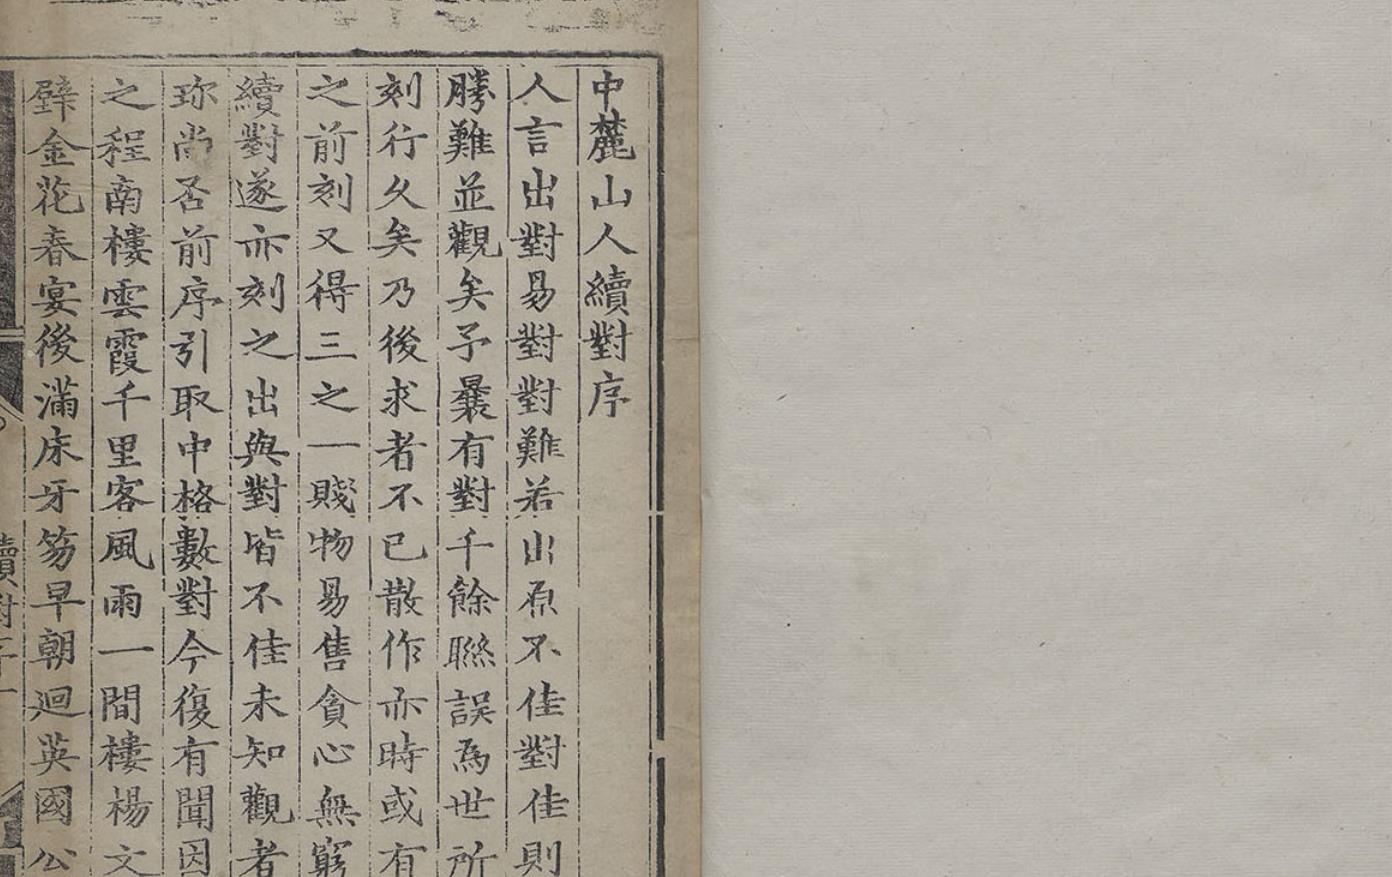 中麓山人續對序
人言出對易對對難若出原不佳對佳則
勝難並觀矣予曩有對千餘聯誤為世所
刻行久矣乃後求者不已散作亦時或有
之前刻又得三之一賤物易售貪心無窮
續對遂亦刻之出與對皆不佳未知觀者
珎尚否前序引取中格數對今復有聞因
之程南樓雲霞千里客風雨一間樓楊文
璧金花春宴後滿床牙笏早朝迴英國公
續對